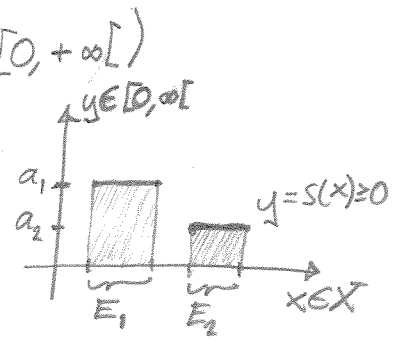 [0, +∞[)
y∈[0,∞[
a₁
a₂
y=s(x)≥0
E₁
E₂
x∈X